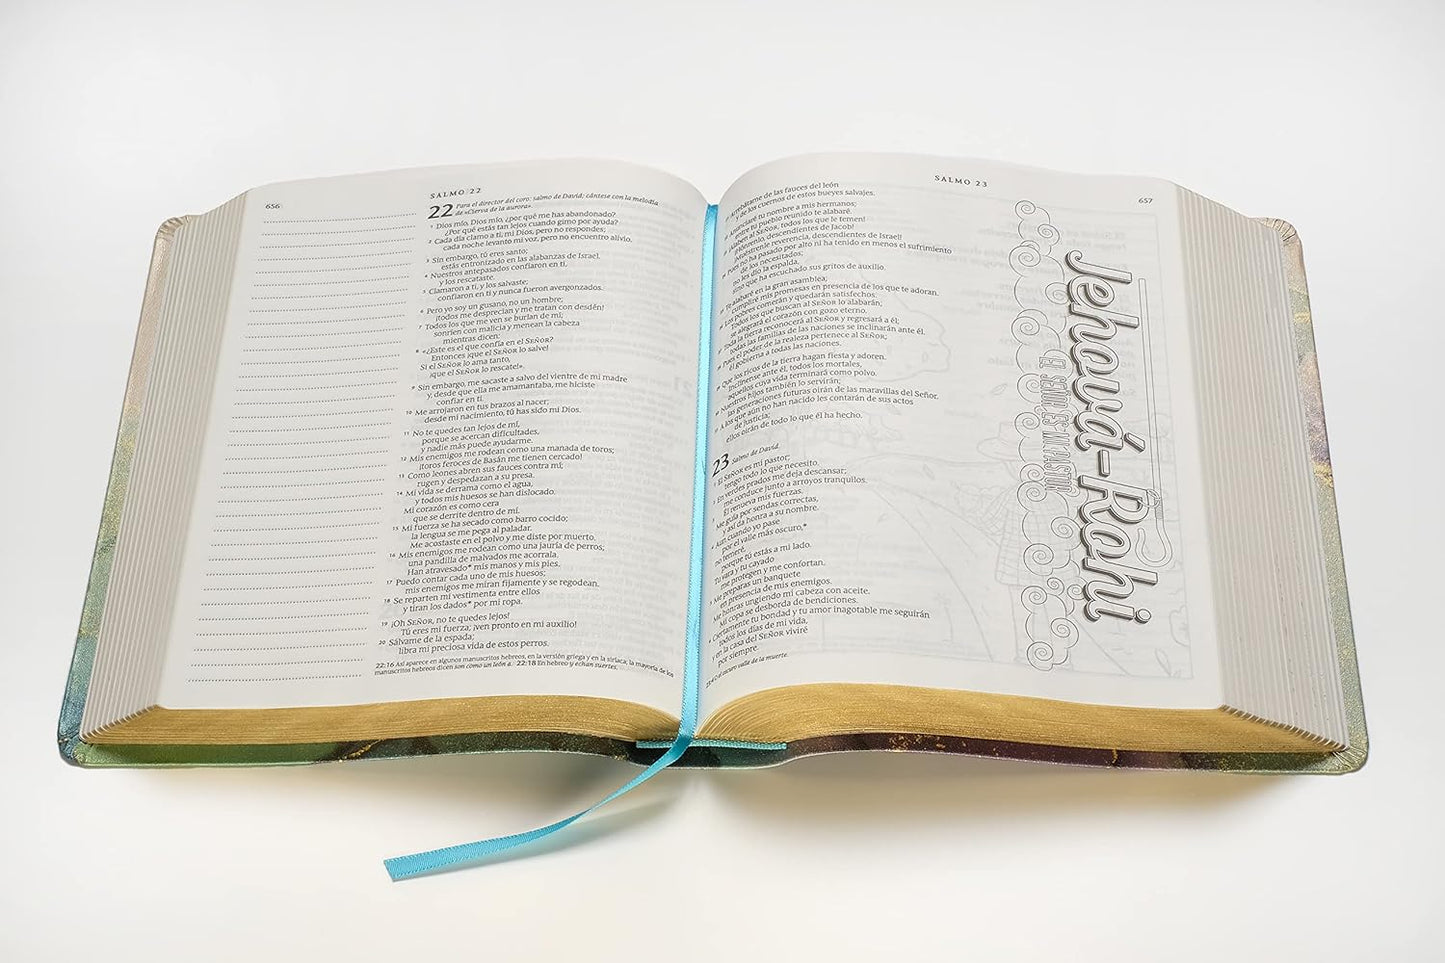 SALMO 22
656
22 Para el director del coro: salmo de David; cántese con la melodía
de «Cierva de la aurora».
1 Dios mío, Dios mío, ¿por qué me has abandonado?
¿Por qué estás tan lejos cuando gimo por ayuda?
2 Cada día clamo a ti, mi Dios, pero no respondes;
cada noche levanto mi voz, pero no encuentro alivio.
3 Sin embargo, tú eres santo;
estás entronizado en las alabanzas de Israel.
4 Nuestros antepasados confiaron en ti,
y los rescataste.
5 Clamaron a ti, y los salvaste;
confiaron en ti y nunca fueron avergonzados.
6 Pero yo soy un gusano, no un hombre;
¡todos me desprecian y me tratan con desdén!
7 Todos los que me ven se burlan de mí;
sonríen con malicia y menean la cabeza
mientras dicen:
8 «¿Este es el que confía en el SEÑOR?
Entonces ¡que el SEÑOR lo salve!
Si el SEÑOR lo ama tanto,
¡que el SEÑOR lo rescate!».
9 Sin embargo, me sacaste a salvo del vientre de mi madre
y, desde que ella me amamantaba, me hiciste
confiar en ti.
10 Me arrojaron en tus brazos al nacer;
desde mi nacimiento, tú has sido mi Dios.
11 No te quedes tan lejos de mí,
porque se acercan dificultades,
y nadie más puede ayudarme.
12 Mis enemigos me rodean como una manada de toros;
¡toros feroces de Basán me tienen cercado!
13 Como leones abren sus fauces contra mí;
rugen y despedazan a su presa.
14 Mi vida se derrama como el agua,
y todos mis huesos se han dislocado.
Mi corazón es como cera
que se derrite dentro de mí.
15 Mi fuerza se ha secado como barro cocido;
la lengua se me pega al paladar.
Me acostaste en el polvo y me diste por muerto.
16 Mis enemigos me rodean como una jauría de perros;
una pandilla de malvados me acorrala.
Han atravesado* mis manos y mis pies.
17 Puedo contar cada uno de mis huesos;
mis enemigos me miran fijamente y se regodean.
18 Se reparten mi vestimenta entre ellos
y tiran los dados* por mi ropa.
19 ¡Oh SEÑOR, no te quedes lejos!
Tú eres mi fuerza; ¡ven pronto en mi auxilio!
20 Sálvame de la espada;
libra mi preciosa vida de estos perros.
22:16 Así aparece en algunos manuscritos hebreos, en la versión griega y en la siríaca; la mayoría de los
manuscritos hebreos dicen son como un león a. 22:18 En hebreo y echan suertes.
SALMO 23
657
Arrebátame de las fauces del león
y de los cuernos de estos bueyes salvajes.
Anunciaré tu nombre a mis hermanos;
entre tu pueblo reunido te alabaré.
¡Alaben al SEÑOR, todos los que le temen!
¡Hónrenlo, descendientes de Jacob!
¡Muéstrenle reverencia, descendientes de Israel!
Pues no ha pasado por alto ni ha tenido en menos el sufrimiento
de los necesitados;
no les dio la espalda,
sino que ha escuchado sus gritos de auxilio.
Te alabaré en la gran asamblea;
cumpliré mis promesas en presencia de los que te adoran.
Los pobres comerán y quedarán satisfechos;
Todos los que buscan al SEÑOR lo alabarán;
se alegrará el corazón con gozo eterno.
Toda la tierra reconocerá al SEÑOR y regresará a él;
todas las familias de las naciones se inclinarán ante él.
Pues el poder de la realeza pertenece al SEÑOR;
él gobierna a todas las naciones.
Que los ricos de la tierra hagan fiesta y adoren.
Inclínense ante él, todos los mortales,
aquellos cuya vida terminará como polvo.
Nuestros hijos también lo servirán;
las generaciones futuras oirán de las maravillas del Señor.
A los que aún no han nacido les contarán de sus actos
de justicia;
ellos oirán de todo lo que él ha hecho.
23 Salmo de David.
1 El SEÑOR es mi pastor;
tengo todo lo que necesito.
2 En verdes prados me deja descansar;
me conduce junto a arroyos tranquilos.
3 Él renueva mis fuerzas.
Me guía por sendas correctas,
y así da honra a su nombre.
4 Aun cuando yo pase
por el valle más oscuro,*
no temeré,
porque tú estás a mi lado.
Tu vara y tu cayado
me protegen y me confortan.
5 Me preparas un banquete
en presencia de mis enemigos.
Me honras ungiendo mi cabeza con aceite.
Mi copa se desborda de bendiciones.
6 Ciertamente tu bondad y tu amor inagotable me seguirán
todos los días de mi vida,
y en la casa del SEÑOR viviré
por siempre.
23:4 O el oscuro valle de la muerte.
Jehová-Rohi
EL SEÑOR ES MI PASTOR